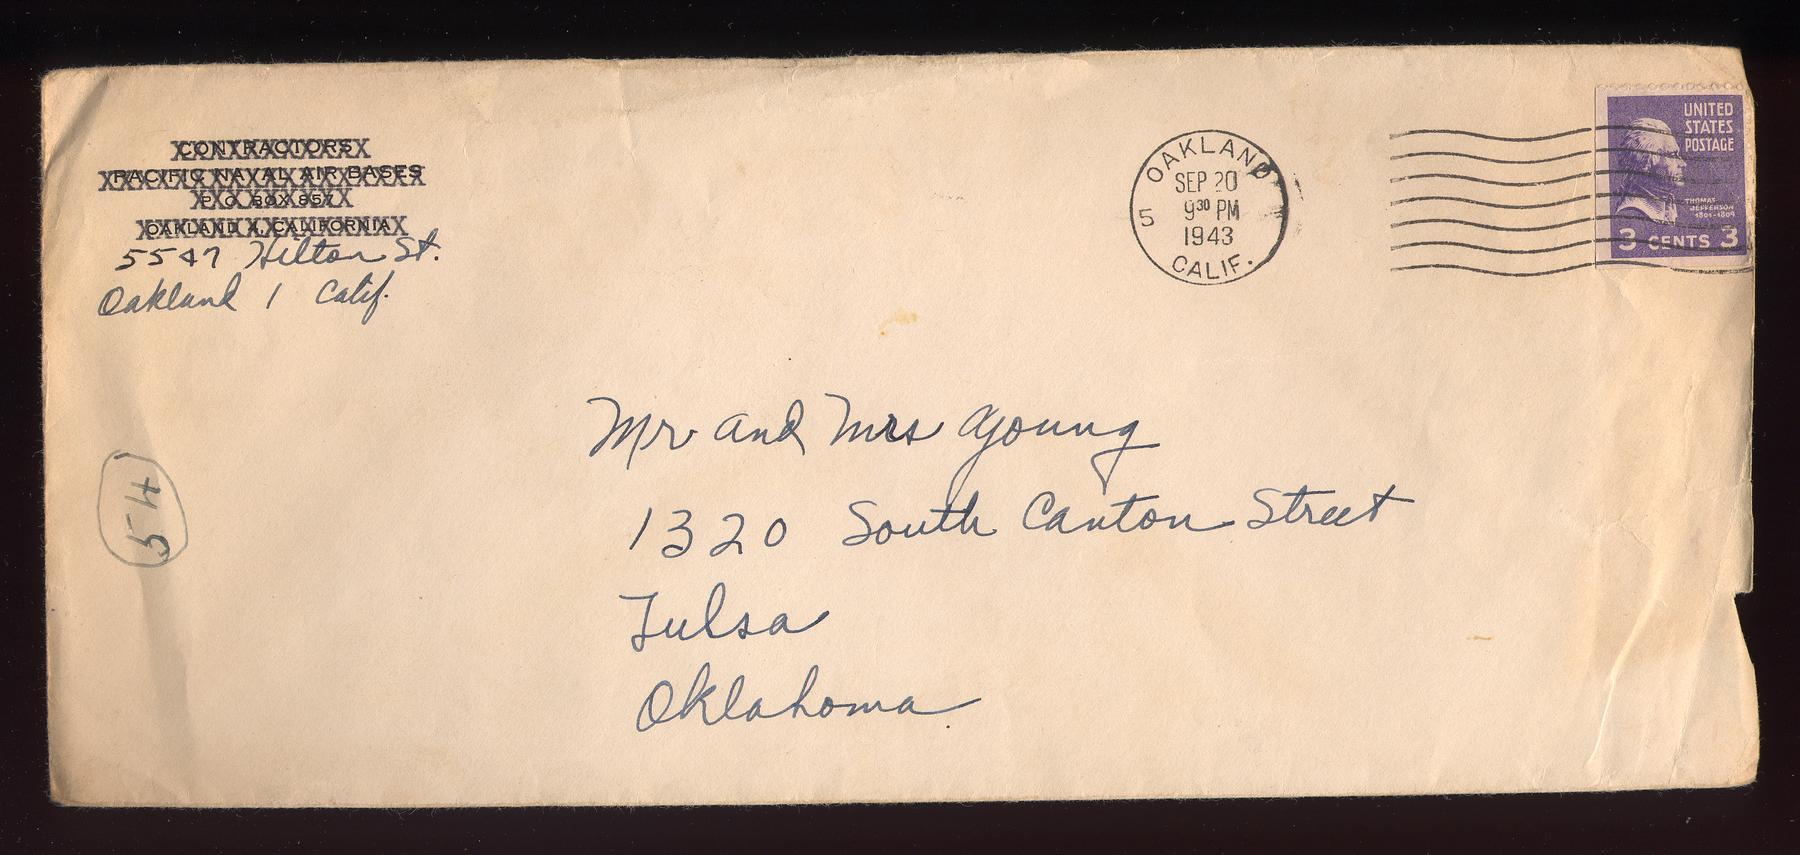 CONTRACTORS
PACIFIC NAVAL AIR BASES
P. O. BOX 857
OAKLAND 1, CALIFORNIA
5547 Hilton St.
Oakland 1 Calif.
OAKLAND
SEP 20
9 30 PM
1943
5
CALIF.
UNITED
STATES
POSTAGE
THOMAS
JEFFERSON
1801-1809
3 CENTS 3
Mr and Mrs Young
1320 South Canton Street
Tulsa
Oklahoma
54